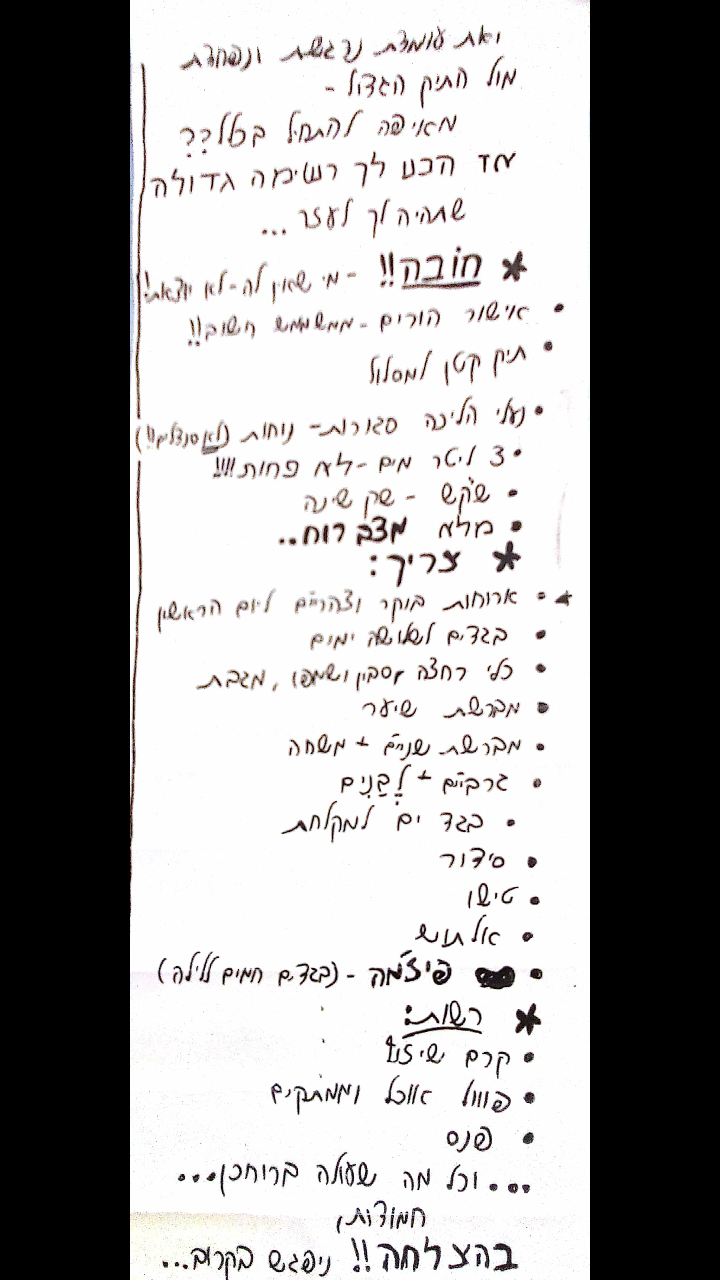 ואת עומדת נרגשת ונפחדת
מול התיק הגדול -
מאיפה להתחיל בכלל??
אז הכנו לך רשימה גדולה
שתהיה לך לעזר...
* חוֹבה!! - מי שאין לה - לא יוצאת!
• אישור הורים - ממשמש חשוב!!
• תיק קטן למסלול
• נעלי הליכה סגורות - נוחות (לא סנדלים!!)
• 3 ליטר מים - לא פחות!!!!
• שק"ש - שק שינה
• מלא מצב רוח..
* צריך:
• ארוחות בוקר וצהריים ליום הראשון
• בגדים לשלושה ימים
• כלי רחצה, סבון ושמפו, מגבת
• מברשת שיער
• מברשת שניים + משחה
• גרביים + לְבָנִים
• בגד ים למקלחת
• סידור
• טישו
• אל תוש
• פיז'מה - (בגדים חמים ללילה)
* רשות:
• קרם שיזוף
• פווול אווכל וממתקים
• פנס
... וכל מה שעולה ברוחכן...
חמודות,
בהצלחה!! ניפגש בקרוב...